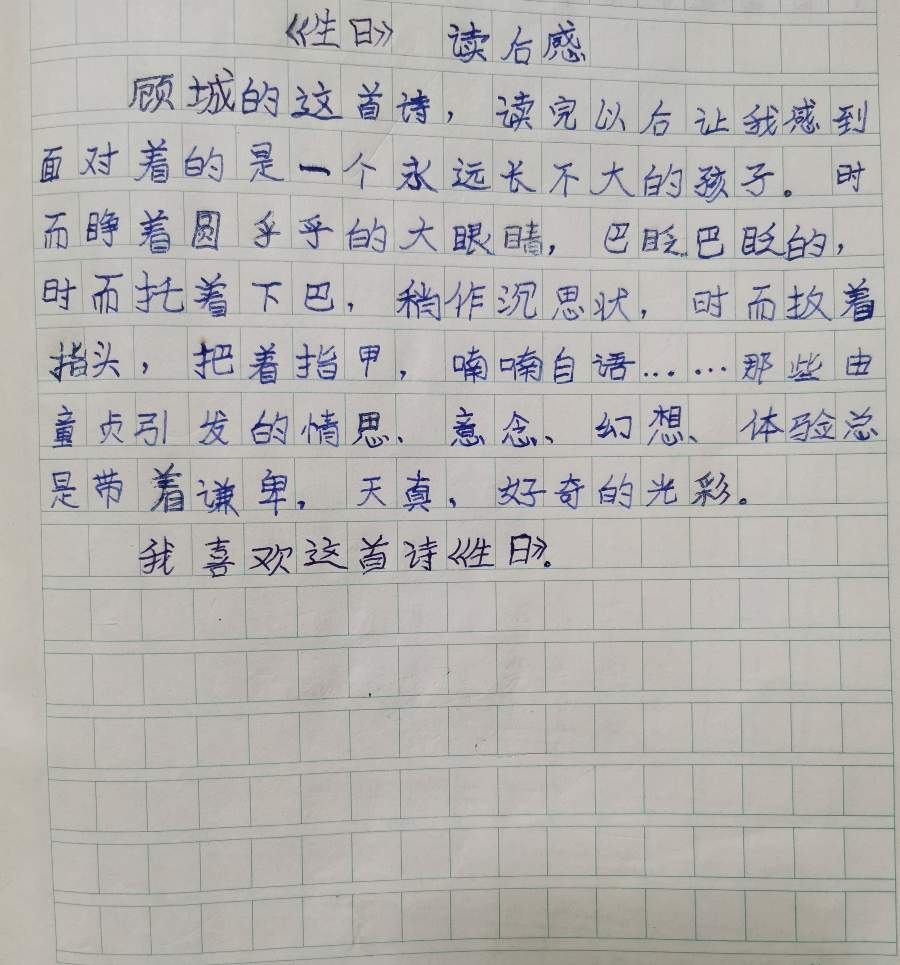 《性日》 读后感
顾城的这首诗，读完以后让我感到
面对着的是一个永远长不大的孩子。时
而睁着圆乎乎的大眼睛，巴眨巴眨的，
时而托着下巴，稍作沉思状，时而扳着
指头，把着指甲，喃喃自语……那些由
童贞引发的情思、意念、幻想、体验总
是带着谦卑，天真，好奇的光彩。
我喜欢这首诗《性日》。